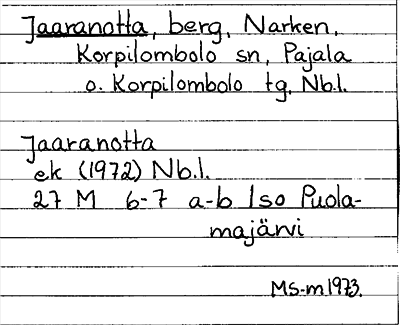 Jaaranotta, berg, Narken,
Korpilombolo sn, Pajala
o. Korpilombolo tg, Nb.l.
Jaaranotta
ek (1972) Nb.l.
27 M 6-7 a-b Iso Puola-
majärvi
MS-m 1973.